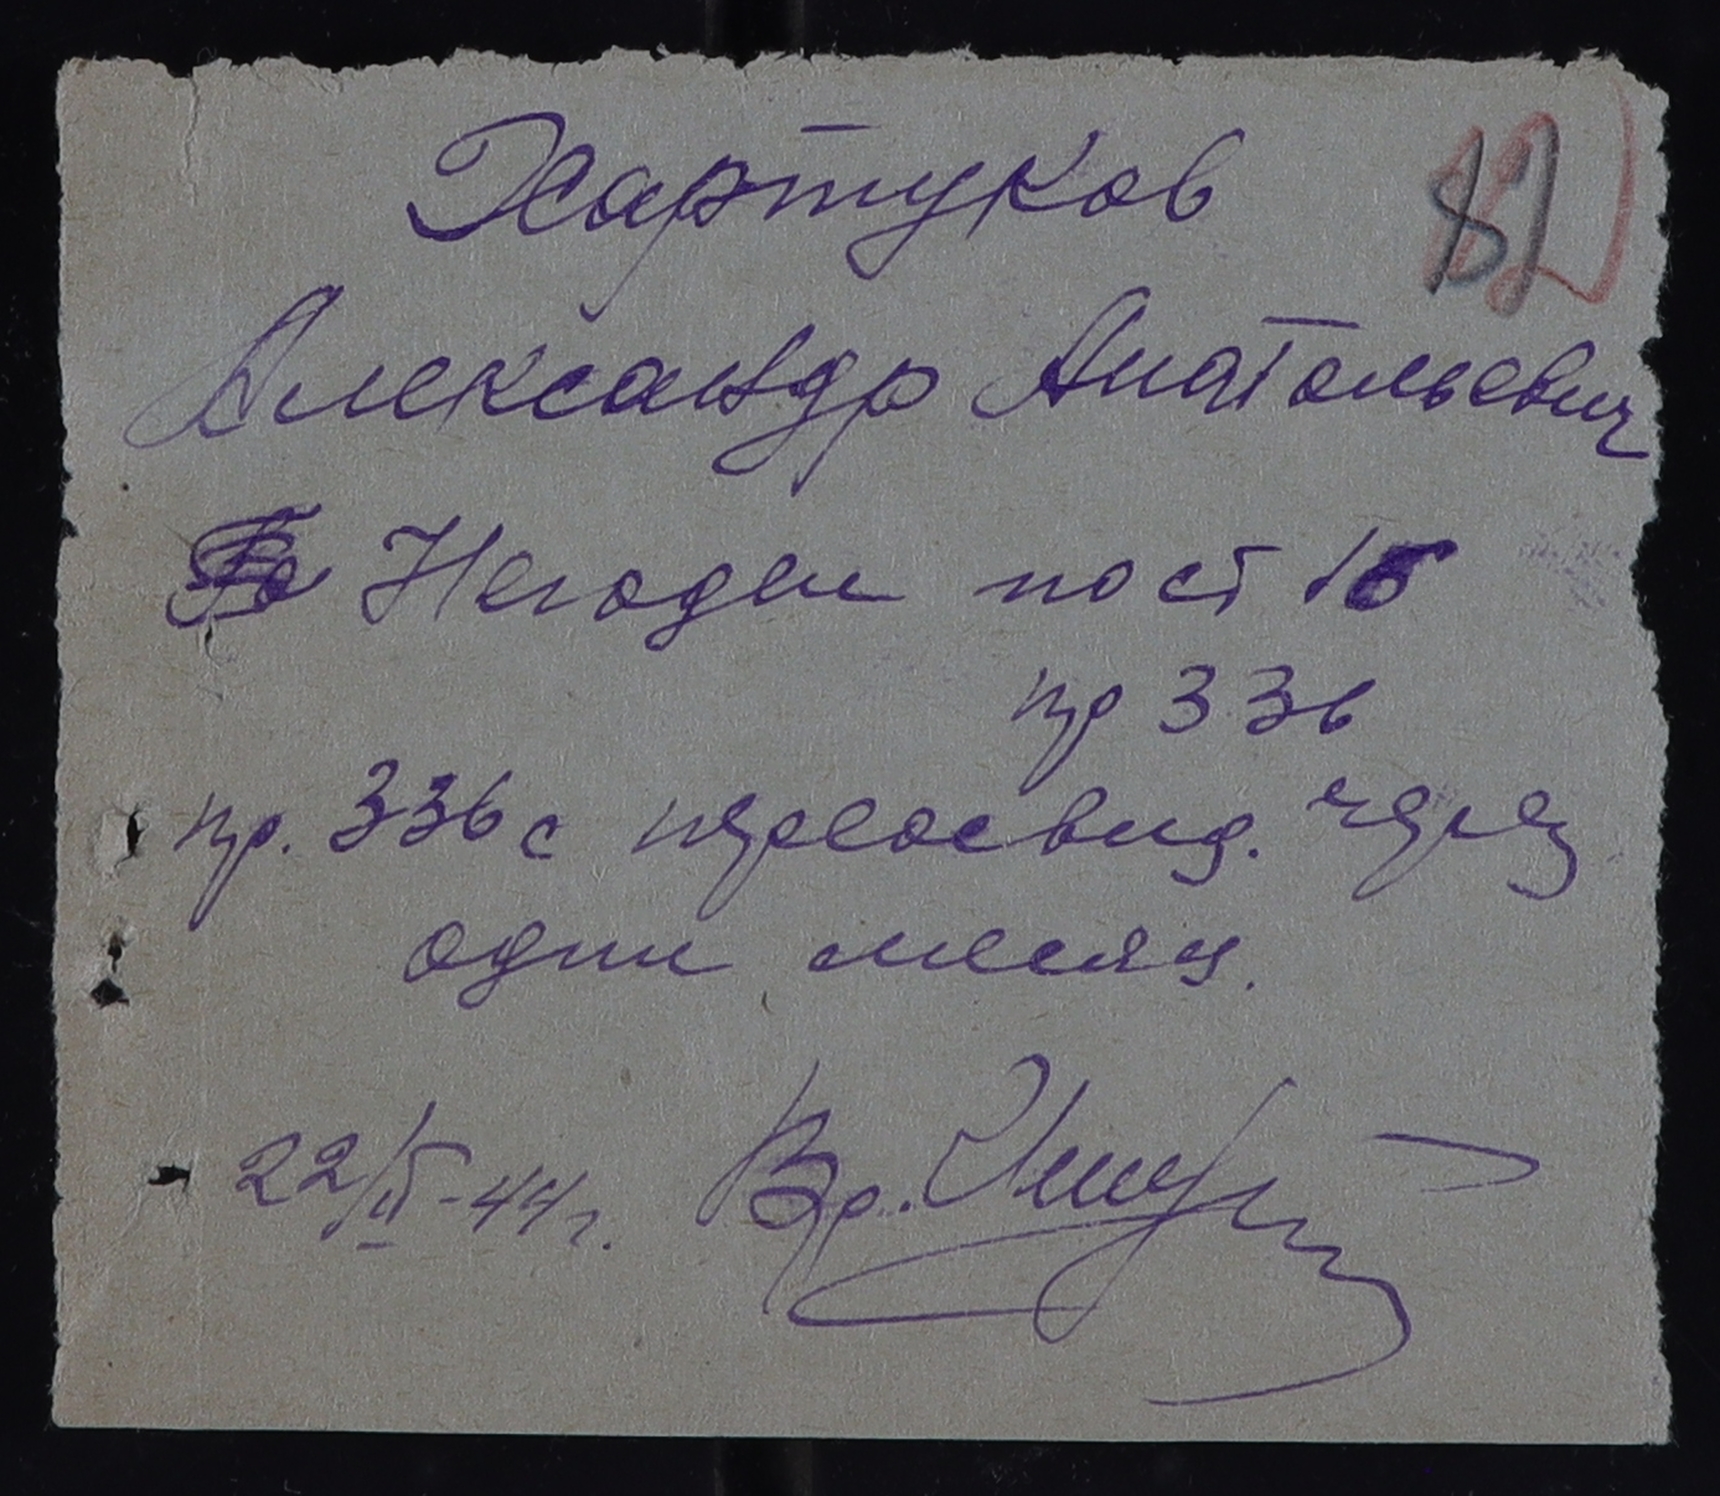 82
Хартуков
Александр Анатольевич
Негоден пост 18
пр 336
пр. 336 с переосвид. через
один месяц.
22/II-44 г. Вр.